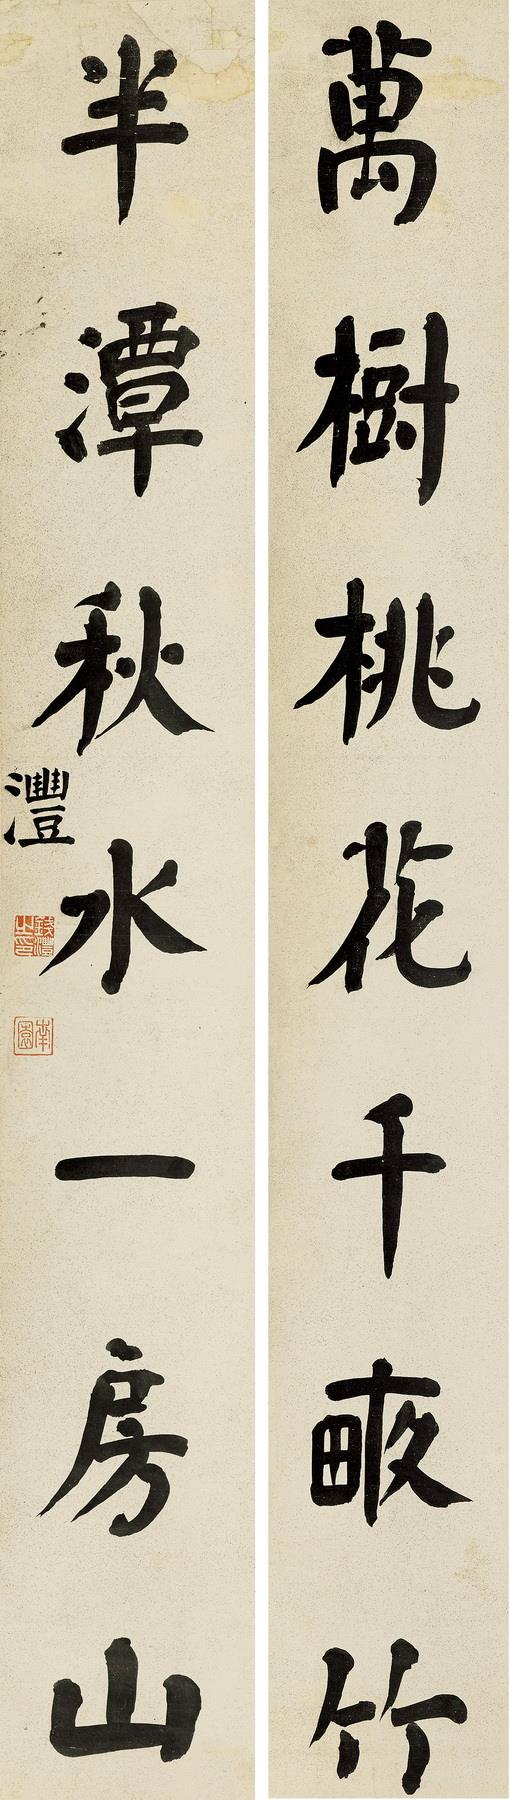 萬樹桃花千畝竹
半潭秋水一房山
灃
錢灃之印
南園